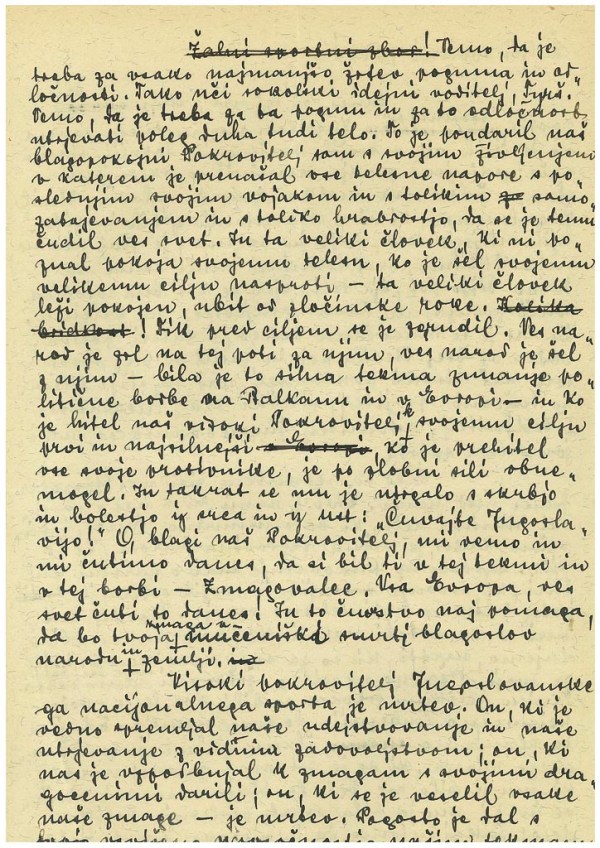 Žalni sportni zbor! Vemo, da je
treba za vsako najmanjšo žrtev poguma in od„
ločnosti. Tako uči sokolski idejni voditelj, Tyrš.
Vemo, da je treba za ta pogum in za to odločnost
utrjevati poleg duha tudi telo. To je poudaril naš
blagopokojni Pokrovitelj sam s svojim življenjem
v katerem je prenašal vse telesne napore s po„
slednjim svojim vojakom in s tolikim samo„
zatajevanjem in s toliko hrabrostjo, da se je temu
čudil ves svet. In ta veliki človek, ki ni po„
znal pokoja svojemu telesu, ko je šel svojemu
velikemu cilju nasproti – ta veliki človek
leži pokojen, ubit od zločinske roke. Kolika
bridkost! Tik pred ciljem se je zgrudil. Ves na„
rod je šel na tej poti za njim, ves narod je šel
z njim – bila je to silna tekma zunanje po„
litične borbe na Balkanu in v Evropi – in ko
je hitel naš visoki Pokrovitelj k svojemu cilju
prvi in najsilnejši v Evropi, ko je prehitel
vse svoje protivnike, je po zlobni sili obne„
mogel. In takrat se mu je utrgalo s skrbjo
in bolestjo iz srca in iz ust: „Čuvajte Jugosla„
vijo!" O, blagi naš Pokrovitelj, mi vemo in
mi čutimo danes, da si bil ti v tej tekmi in
v tej borbi – Zmagovalec. Vsa Evropa, ves
svet čuti to danes! In to čuvstvo naj pomaga,
da bo tvoja zmaga v mučeniški smrti blagoslov
narodu in zemlji. in
Visoki pokrovitelj Jugoslovanske
ga nacijonalnega sporta je mrtev. On, ki je
vedno spremljal naše udejstvovanje in naše
utrjevanje z vidnim zadovoljstvom; on, ki
nas je vzpodbujal k zmagam s svojimi dra„
gocenimi darili; on, ki se je veselil vsake
naše zmage – je mrtev. Pogosto je dal s